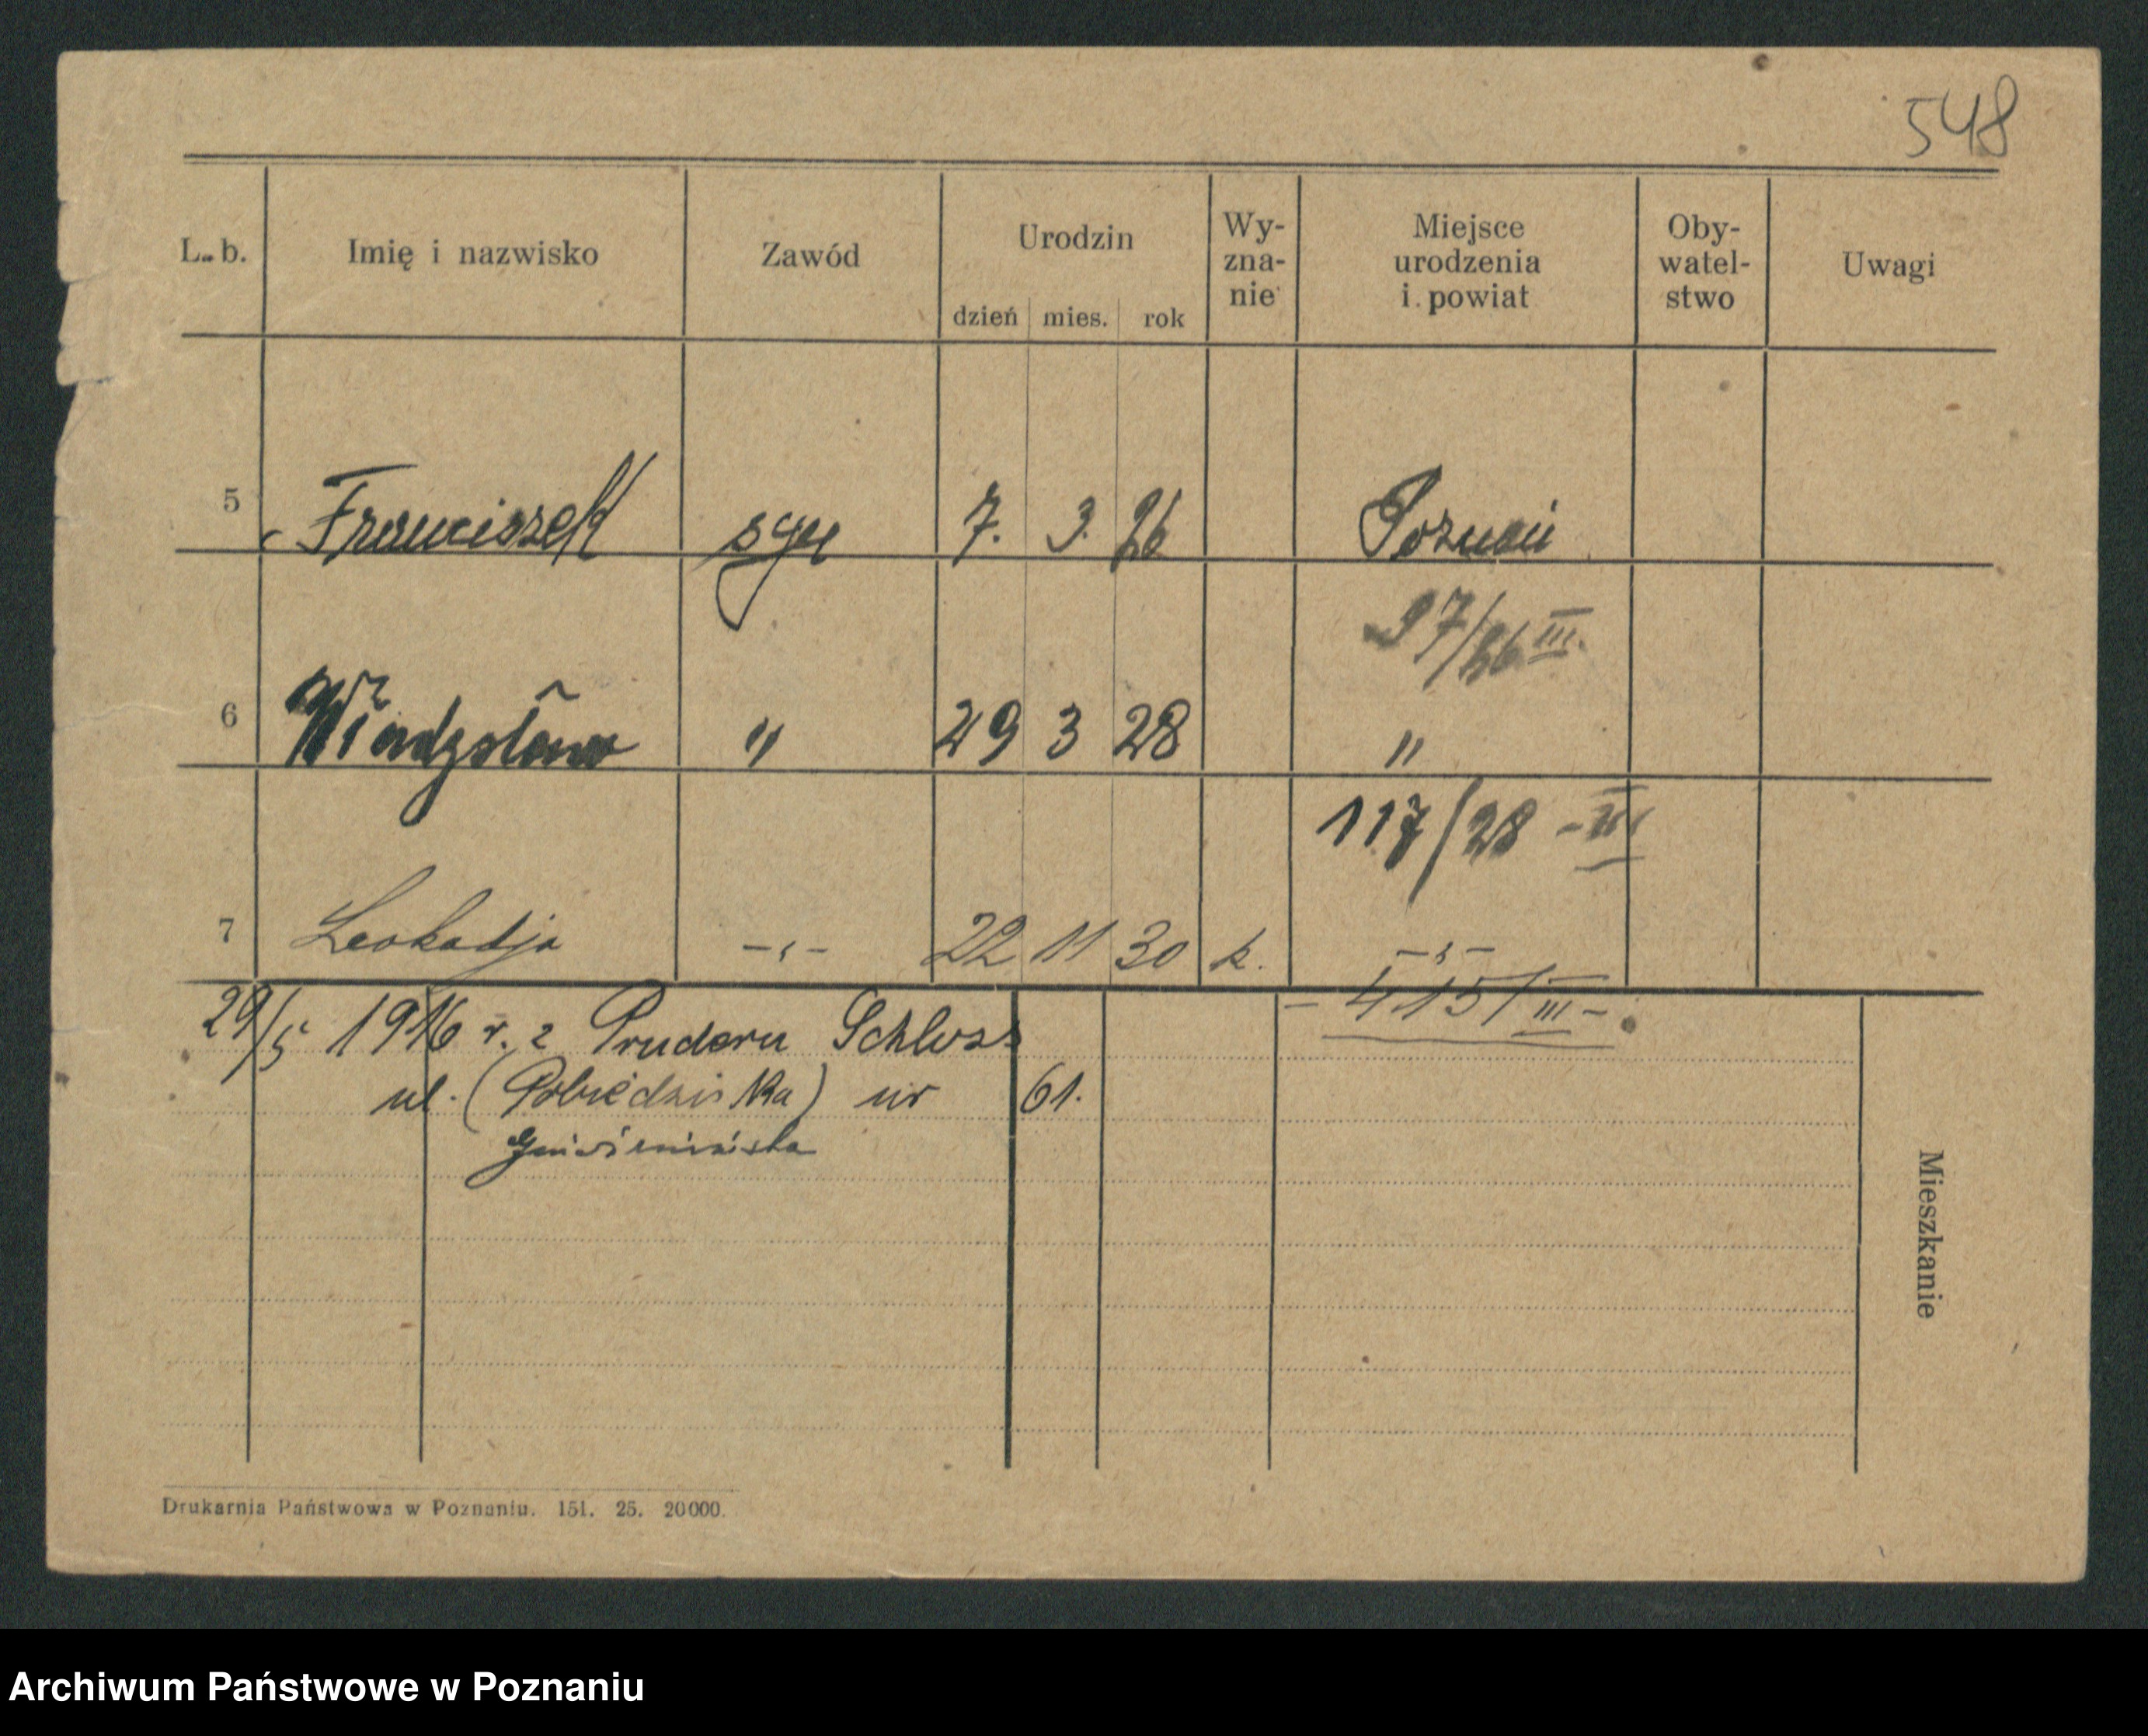 548
L. b. Imię i nazwisko Zawód Urodzin Wy- Miejsce Oby- Uwagi
zna- urodzenia watel-
nie i powiat stwo
dzień mies. rok
5 Franciszek syn 7. 3. 26 Poznań
97/26 III.
6 Władysław " 29 3 28 "
117/28 - III
7 Leokadja -„- 22 11 30 k. -„-
- 415/III -
29/5 1916 r. z Pruderu Schloss
ul. (Pobiedziska) nr 61.
Gnieźnieńska
Mieszkanie
Drukarnia Państwowa w Poznaniu. 151. 25. 20000.
Archiwum Państwowe w Poznaniu